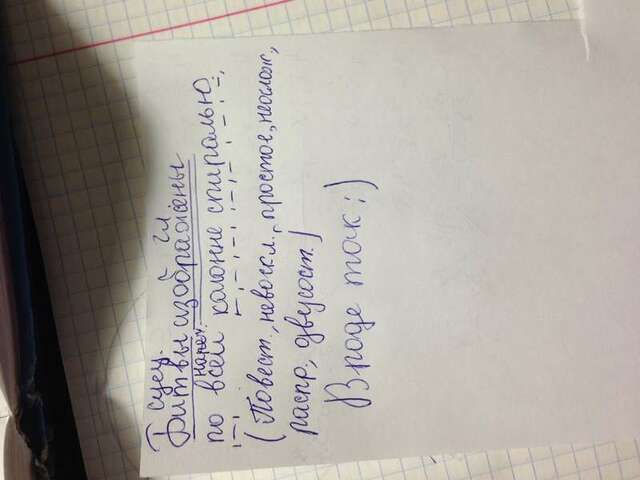 сущ. гл
Битвы изображены
нареч.
по всей колонне спиралью.
(Повест., невоскл., простое, неослож.,
распр., двусост.)
Вроде так :)